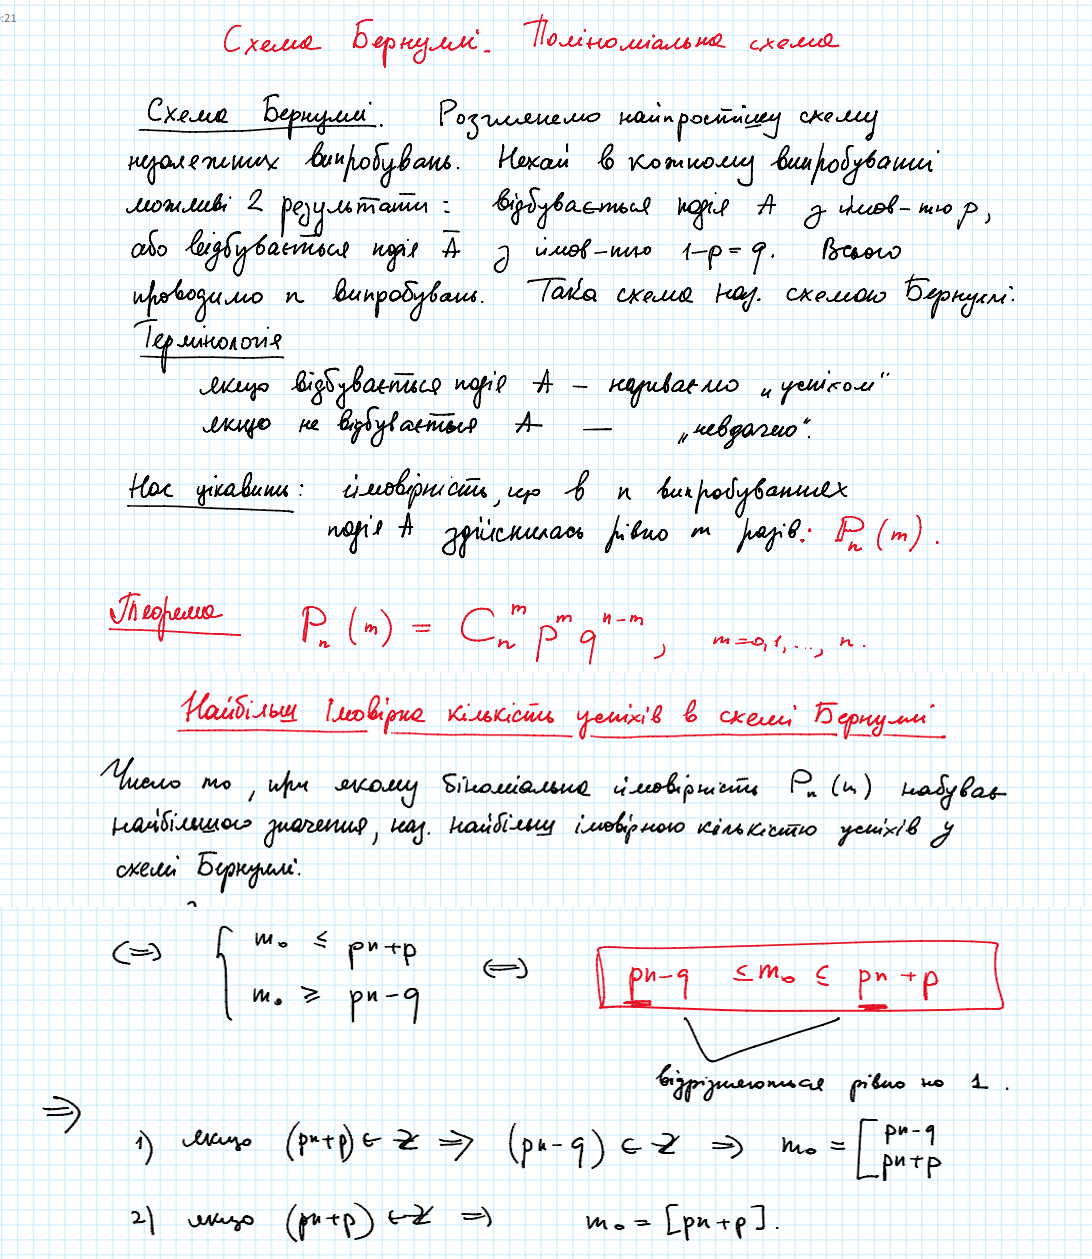 :21
Схема Бернуллі. Поліноміальна схема
Схема Бернуллі. Розглянемо найпростішу схему
незалежних випробувань. Нехай в кожному випробуванні
можливі 2 результати: відбувається подія A з імов-тю p,
або відбувається подія A̅ з імов-тю 1-p=q. Всього
проводимо n випробувань. Така схема наз. схемою Бернуллі.
Термінологія
якщо відбувається подія A – називаємо „успіхом"
якщо не відбувається A — „невдачею".
Нас цікавить: ймовірність, що в n випробуваннях
подія A здійснилась рівно m разів: Pₙ(m).
Теорема Pₙ(m) = Cₙᵐ pᵐ qⁿ⁻ᵐ, m=0,1,..., n.
Найбільш імовірна кількість успіхів в схемі Бернуллі
Число m₀, при якому біноміальна ймовірність Pₙ(m) набуває
найбільшого значення, наз. найбільш імовірною кількістю успіхів у
схемі Бернуллі.
(=) { m₀ ≤ pn+p
m₀ ≥ pn-q (=) pn-q ≤ m₀ ≤ pn+p
відрізняються рівно на 1.
⇒
1) якщо (pn+p) ∈ Z ⇒ (pn-q) ∈ Z ⇒ m₀ = [ pn-q
pn+p
2) якщо (pn+p) ∉ Z ⇒ m₀ = [pn+p].